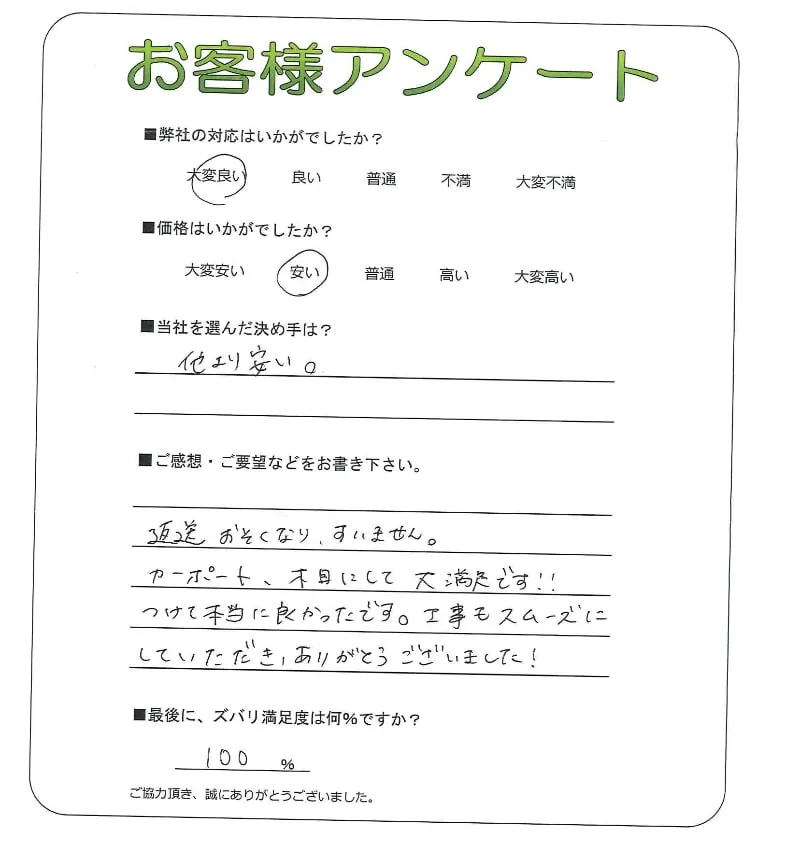 お客様アンケート
■弊社の対応はいかがでしたか？
大変良い 良い 普通 不満 大変不満
■価格はいかがでしたか？
大変安い 安い 普通 高い 大変高い
■当社を選んだ決め手は？
他より安い。
■ご感想・ご要望などをお書き下さい。
返送 おそくなり、すいません。
カーポート、木目にして 大満足です!!
つけて本当に良かったです。工事もスムーズに
していただき、ありがとうございました！
■最後に、ズバリ満足度は何%ですか？
100 %
ご協力頂き、誠にありがとうございました。